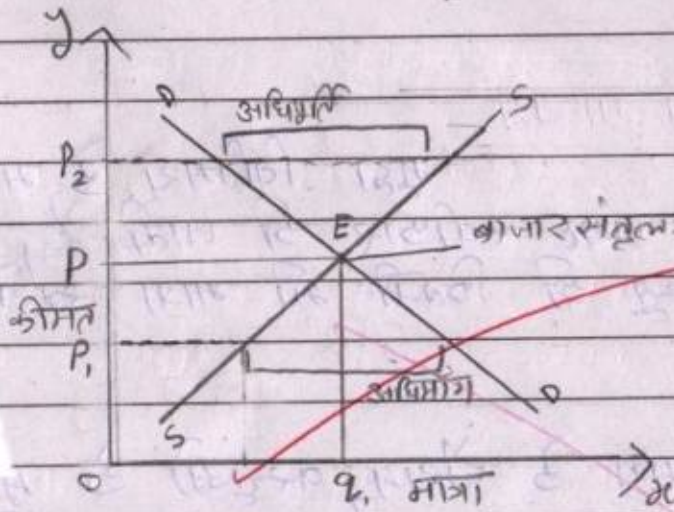 y
D
अधिपूर्ति
S
P₂
E
P
बाजार संतुलन
कीमत
P₁
अधिमांग
S
D
O
q, मात्रा
x